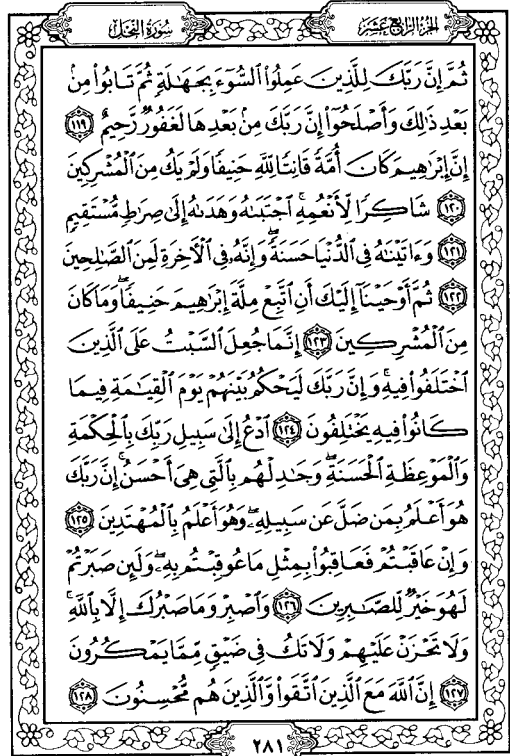 سُورَةُ النَّحْلِ
الجُزْءُ الرَّابِعَ عَشَرَ
ثُمَّ إِنَّ رَبَّكَ لِلَّذِينَ عَمِلُوا۟ ٱلسُّوٓءَ بِجَهَٰلَةٍ ثُمَّ تَابُوا۟ مِنۢ
بَعْدِ ذَٰلِكَ وَأَصْلَحُوٓا۟ إِنَّ رَبَّكَ مِنۢ بَعْدِهَا لَغَفُورٌ رَّحِيمٌ ١١٩
إِنَّ إِبْرَٰهِيمَ كَانَ أُمَّةً قَانِتًا لِّلَّهِ حَنِيفًا وَلَمْ يَكُ مِنَ ٱلْمُشْرِكِينَ
١٢٠ شَاكِرًا لِّأَنْعُمِهِ ۚ ٱجْتَبَىٰهُ وَهَدَىٰهُ إِلَىٰ صِرَٰطٍ مُّسْتَقِيمٍ
١٢١ وَءَاتَيْنَٰهُ فِى ٱلدُّنْيَا حَسَنَةً ۖ وَإِنَّهُۥ فِى ٱلْـَٔاخِرَةِ لَمِنَ ٱلصَّٰلِحِينَ
١٢٢ ثُمَّ أَوْحَيْنَآ إِلَيْكَ أَنِ ٱتَّبِعْ مِلَّةَ إِبْرَٰهِيمَ حَنِيفًا ۖ وَمَا كَانَ
مِنَ ٱلْمُشْرِكِينَ ١٢٣ إِنَّمَا جُعِلَ ٱلسَّبْتُ عَلَى ٱلَّذِينَ
ٱخْتَلَفُوا۟ فِيهِ ۚ وَإِنَّ رَبَّكَ لَيَحْكُمُ بَيْنَهُمْ يَوْمَ ٱلْقِيَٰمَةِ فِيمَا
كَانُوا۟ فِيهِ يَخْتَلِفُونَ ١٢٤ ٱدْعُ إِلَىٰ سَبِيلِ رَبِّكَ بِٱلْحِكْمَةِ
وَٱلْمَوْعِظَةِ ٱلْحَسَنَةِ ۖ وَجَٰدِلْهُم بِٱلَّتِى هِىَ أَحْسَنُ ۚ إِنَّ رَبَّكَ
هُوَ أَعْلَمُ بِمَن ضَلَّ عَن سَبِيلِهِۦ ۖ وَهُوَ أَعْلَمُ بِٱلْمُهْتَدِينَ ١٢٥
وَإِنْ عَاقَبْتُمْ فَعَاقِبُوا۟ بِمِثْلِ مَا عُوقِبْتُم بِهِۦ ۖ وَلَئِن صَبَرْتُمْ
لَهُوَ خَيْرٌ لِّلصَّٰبِرِينَ ١٢٦ وَٱصْبِرْ وَمَا صَبْرُكَ إِلَّا بِٱللَّهِ ۚ
وَلَا تَحْزَنْ عَلَيْهِمْ وَلَا تَكُ فِى ضَيْقٍ مِّمَّا يَمْكُرُونَ
١٢٧ إِنَّ ٱللَّهَ مَعَ ٱلَّذِينَ ٱتَّقَوا۟ وَّٱلَّذِينَ هُم مُّحْسِنُونَ ١٢٨
٢٨١